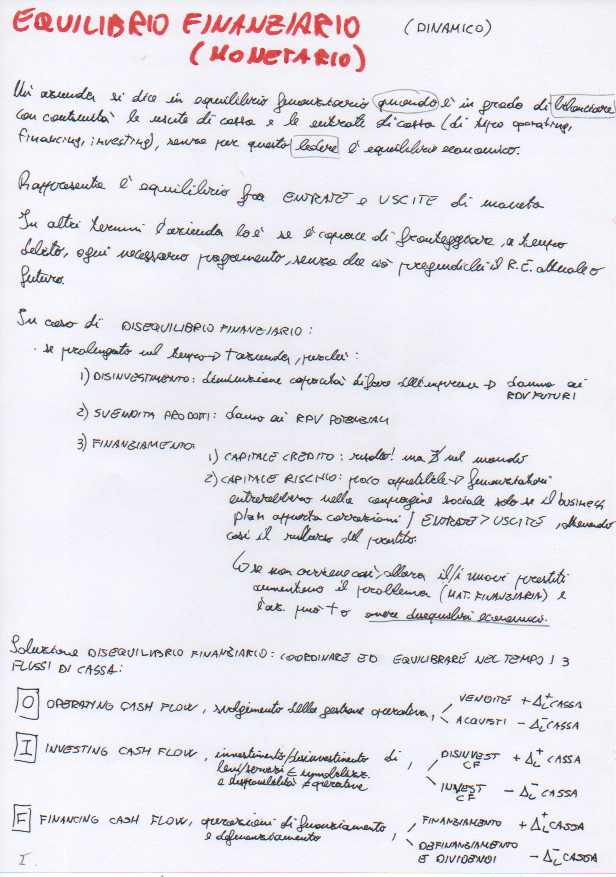 EQUILIBRIO FINANZIARIO (DINAMICO)
(MONETARIO)
Un'azienda si dice in equilibrio finanziario quando è in grado di bilanciare
con continuità le uscite di cassa e le entrate di cassa (di tipo operating,
financing, investing), senza per questo ledere l'equilibrio economico.
Rappresenta l'equilibrio fra ENTRATE e USCITE di moneta
In altri termini l'azienda lo è se è capace di fronteggiare, a tempo
debito, ogni necessario pagamento, senza che ciò pregiudichi il R.E. attuale o
futuro.
In caso di DISEQUILIBRIO FINANZIARIO:
· se prolungato nel tempo → † azienda, poiché:
1) DISINVESTIMENTO: diminuzione capacità di fare dell'impresa → danno ai
RDV FUTURI
2) SVENDITA PRODOTTI: danno ai RDV POTENZIALI
3) FINANZIAMENTO:
1) CAPITALE CREDITO: risolto! ma nel mondo
2) CAPITALE RISCHIO: poco appetibile → finanziatori
entrerebbero nella compagine sociale solo se il business
plan apporta correzioni / ENTRATE > USCITE, ottenendo
così il rimborso del prestito.
↳ se non avviene così, allora il/i nuovi prestiti
aumentano il problema (MAT. FINANZIARIA) e
l'az. può † o avere disequilibri economici.
Soluzione DISEQUILIBRIO FINANZIARIO: COORDINARE ED EQUILIBRARE NEL TEMPO I 3
FLUSSI DI CASSA:
O OPERATING CASH FLOW, svolgimento della gestione operativa,
VENDITE + Δ⁺ CASSA
ACQUISTI - Δ⁻ CASSA
I INVESTING CASH FLOW, investimento/disinvestimento di
beni/servizi ∈ immobilizz.
e disponibilità ≠ operative
DISINVEST CF + Δ⁺ CASSA
INVEST CF - Δ⁻ CASSA
F FINANCING CASH FLOW, operazioni di finanziamento
e definanziamento
FINANZIAMENTO + Δ⁺ CASSA
DEFINANZIAMENTO
E DIVIDENDI - Δ⁻ CASSA
I.